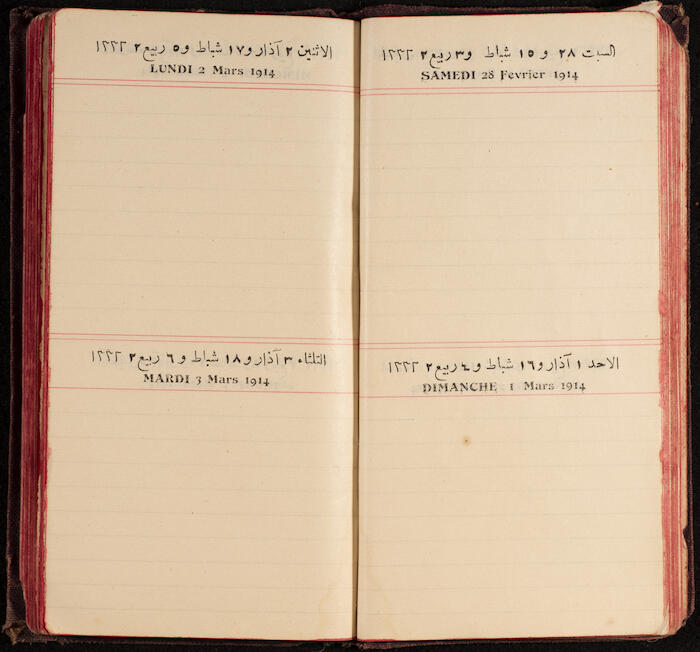 السبت ٢٨ و ١٥ شباط و٣ ربيع ٢ ١٣٣٢
SAMEDI 28 Fevrier 1914
الاحد ١ آذار و١٦ شباط و٤ ربيع ٢ ١٣٣٢
DIMANCHE 1 Mars 1914
الاثنين ٢ آذار و١٧ شباط و٥ ربيع ٢ ١٣٣٢
LUNDI 2 Mars 1914
الثلثاء ٣ آذار و١٨ شباط و٦ ربيع ٢ ١٣٣٢
MARDI 3 Mars 1914